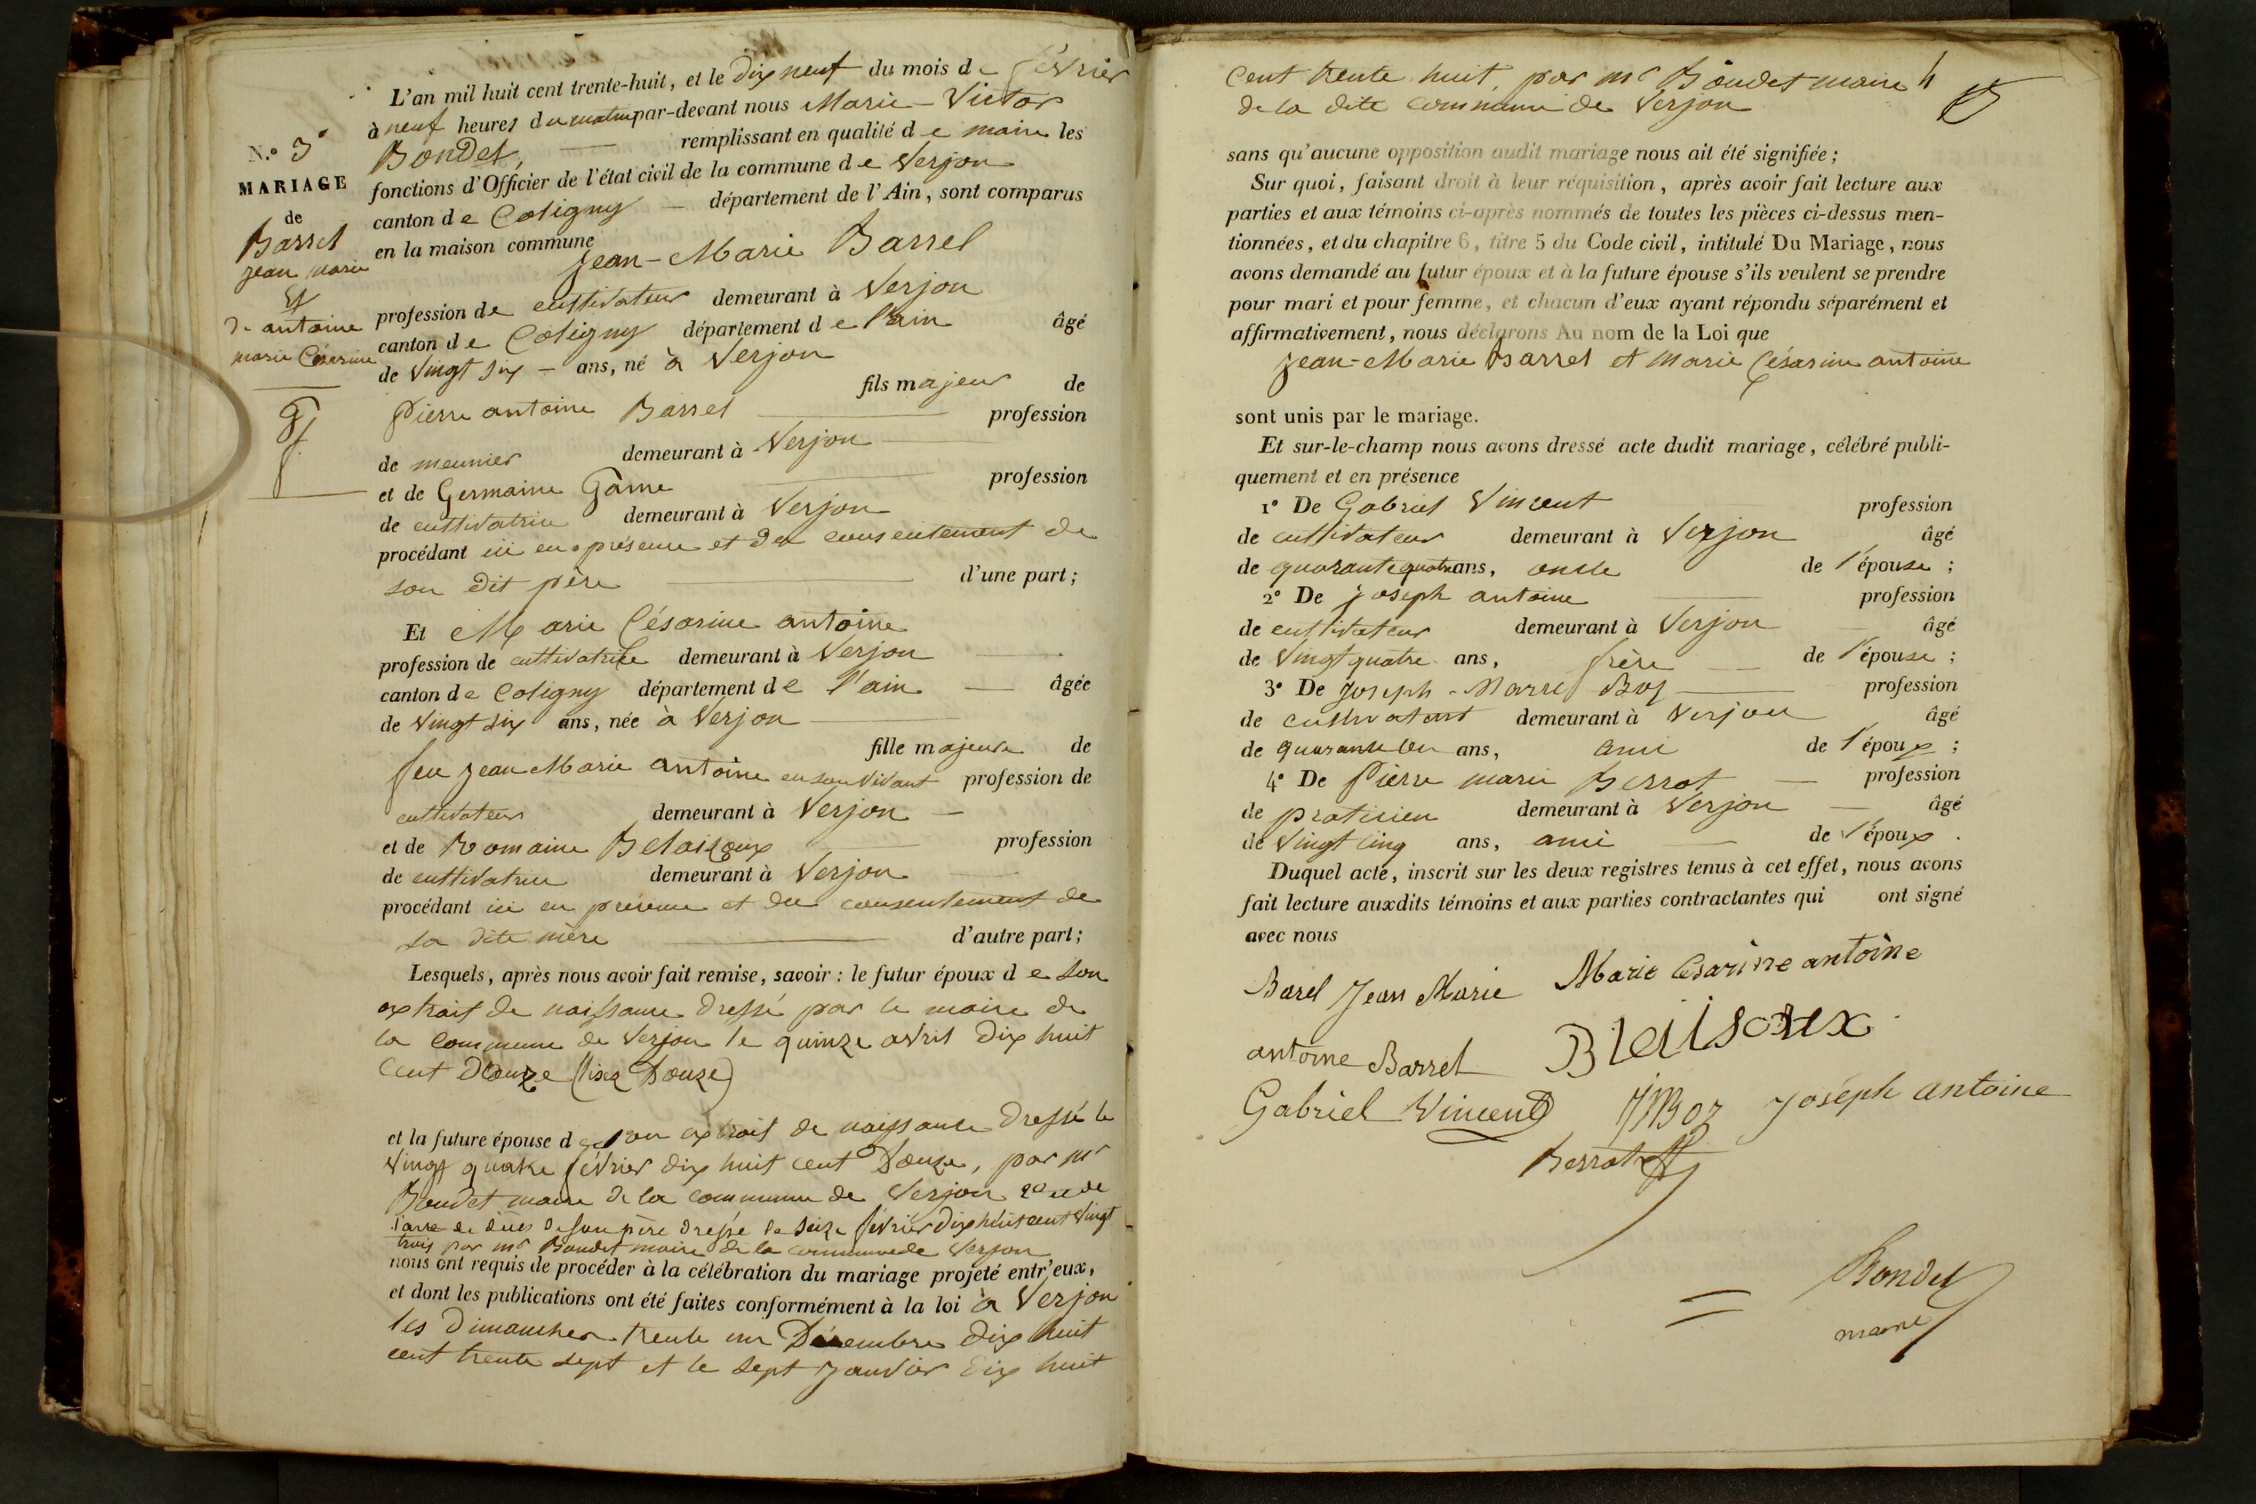 N.º 3
MARIAGE
de
Barrel
Jean Marie
Et
de antoine
marie Césarine
L'an mil huit cent trente-huit, et le dix neuf du mois de février
à neuf heures du matin par-devant nous Marie-Victor
Bondet, remplissant en qualité de maire les
fonctions d'Officier de l'état civil de la commune de Verjon
canton de Coligny département de l'Ain, sont comparus
en la maison commune
Jean-Marie Barrel
profession de cultivateur demeurant à Verjon
canton de Coligny département de l'ain âgé
de vingt six ans, né à Verjon
fils majeur de
Pierre antoine Barrel profession
de meunier demeurant à Verjon
et de Germaine Game profession
de cultivatrice demeurant à Verjon
procédant ici en présence et du consentement de
son dit père d'une part;
Et Marie Césarine antoine
profession de cultivatrice demeurant à Verjon
canton de Coligny département de l'ain âgée
de vingt six ans, née à Verjon
fille majeure de
feu Jean Marie antoine en son vivant profession de
cultivateur demeurant à Verjon
et de Romaine profession
de cultivatrice demeurant à Verjon
procédant ici en présence et du consentement de
sa dite mère d'autre part;
Lesquels, après nous avoir fait remise, savoir : le futur époux de son
extrait de naissance dressé par le maire de
la commune de Verjon le quinze avril dix huit
cent Douze (lisez Douze)
et la future épouse de son extrait de naissance dressé le
vingt quatre février dix huit cent Douze, par mr
Bondet maire de la commune de Verjon 2º de
l'acte de décès de son père dressé le seize février dix huit cent vingt
trois par mr Bondet maire de la commune de Verjon
nous ont requis de procéder à la célébration du mariage projeté entr'eux,
et dont les publications ont été faites conformément à la loi à Verjon
les Dimanches trente un Décembre dix huit
cent trente sept et le sept Janvier dix huit
cent trente huit, par mr Bondet maire 4
de la dite commune de Verjon
sans qu'aucune opposition audit mariage nous ait été signifiée;
Sur quoi, faisant droit à leur réquisition, après avoir fait lecture aux
parties et aux témoins ci-après nommés de toutes les pièces ci-dessus men-
tionnées, et du chapitre 6, titre 5 du Code civil, intitulé Du Mariage, nous
avons demandé au futur époux et à la future épouse s'ils veulent se prendre
pour mari et pour femme, et chacun d'eux ayant répondu séparément et
affirmativement, nous déclarons Au nom de la Loi que
Jean-Marie Barrel et Marie Césarine antoine
sont unis par le mariage.
Et sur-le-champ nous avons dressé acte dudit mariage, célébré publi-
quement et en présence
1º De Gabriel Vincent profession
de cultivateur demeurant à Verjon âgé
de quarante quatre ans, oncle de l'épouse;
2º De Joseph antoine profession
de cultivateur demeurant à Verjon âgé
de vingt quatre ans, frère de l'épouse;
3º De Joseph-Marie Boz profession
de cultivateur demeurant à Verjon âgé
de quarante un ans, ami de l'époux;
4º De Pierre marie Berrot profession
de praticien demeurant à Verjon âgé
de vingt cinq ans, ami de l'époux.
Duquel acte, inscrit sur les deux registres tenus à cet effet, nous avons
fait lecture auxdits témoins et aux parties contractantes qui ont signé
avec nous
Barel Jean Marie Marie Césarine antoine
antoine Barrel Blaisoux
Gabriel Vincent JM Boz Joseph antoine
Berrot
Bondet
maire